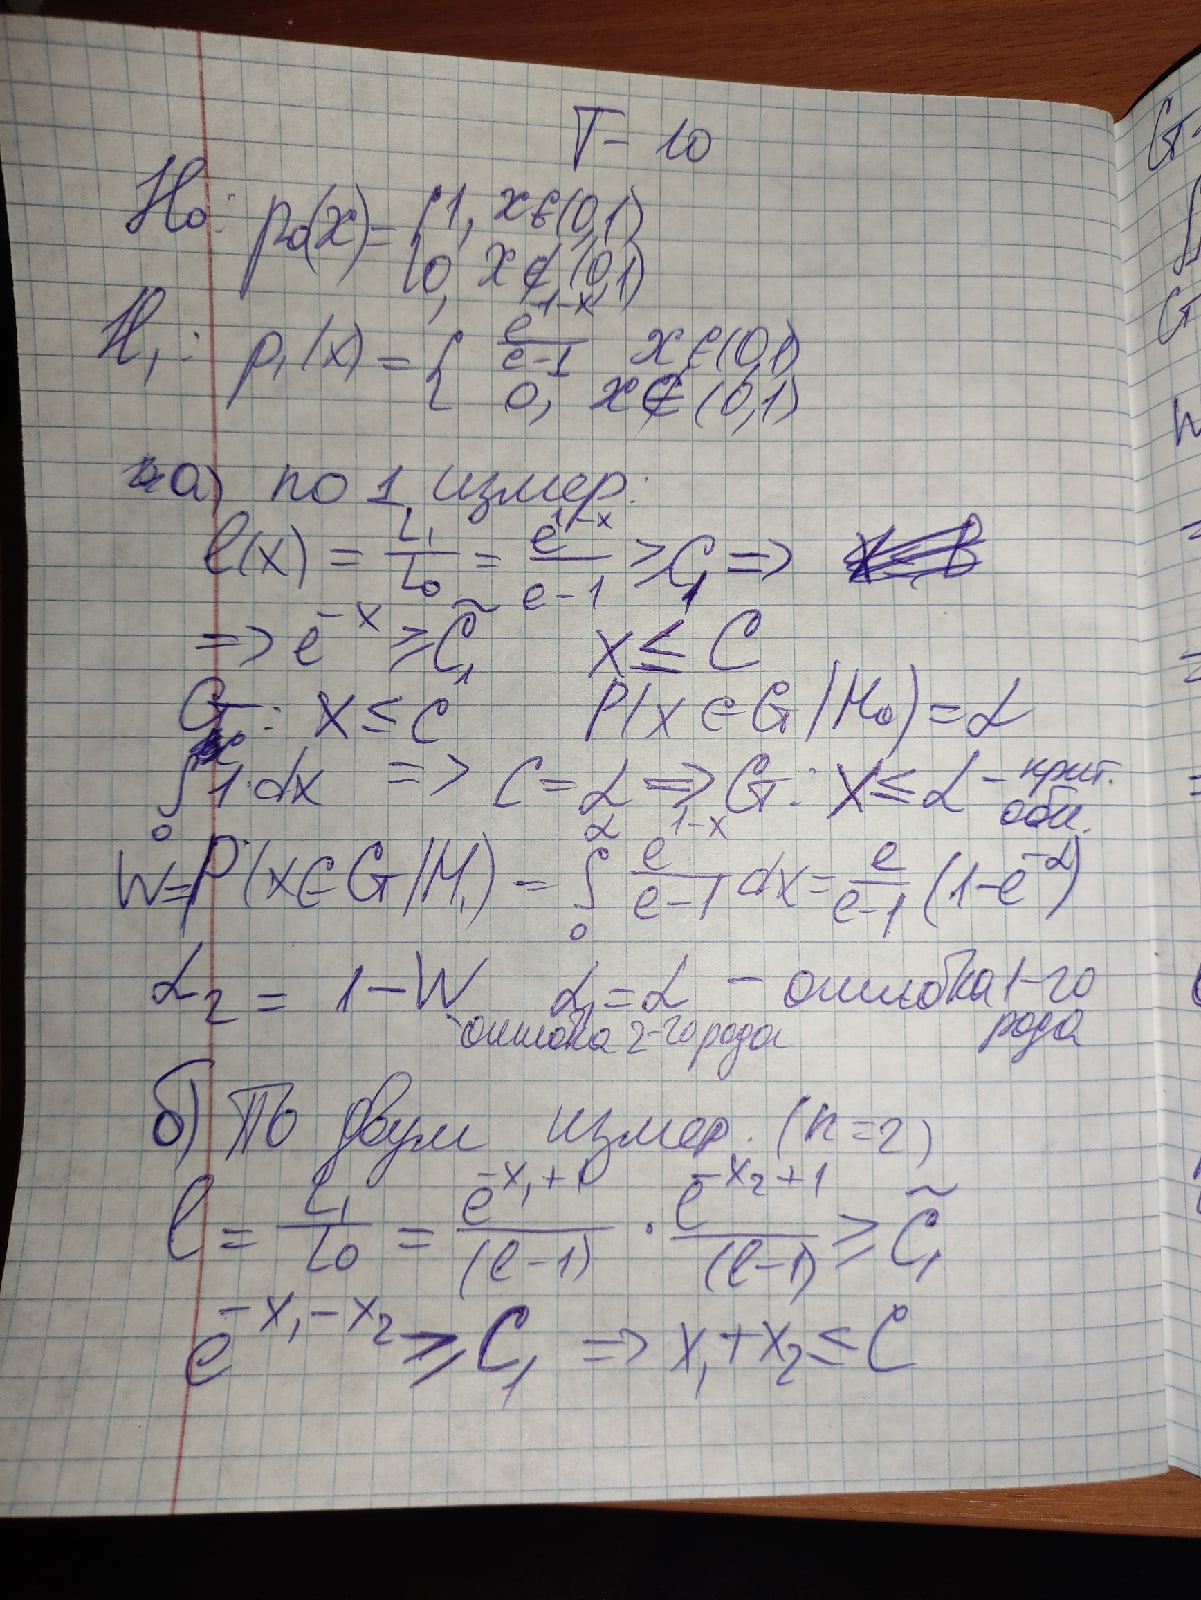 T-10
H₀: p₀(x) = { 1, x∈(0,1)
0, x∉(0,1)
H₁: p₁(x) = { e^{1-x}/(e-1) x∈(0,1)
0, x∉(0,1)
а) по 1 измер:
l(x) = L₁/L₀ = e^{1-x}/(e-1) ≥ C₁ =>
=> e^{-x} ≥ C̃₁ x ≤ C
G: x ≤ c P(x∈G/H₀) = α
∫₀ᶜ 1·dx => C = α => G: x ≤ α - крит. обл.
W = P(x∈G/H₁) = ∫₀^α e^{1-x}/(e-1) dx = e/(e-1) (1-e^{-α})
α₂ = 1-W α₁ = α - ошибка 1-го рода
ошибка 2-го рода
б) По двум измер. (n=2)
l = L₁/L₀ = e^{-x₁+1}/(e-1) · e^{-x₂+1}/(e-1) ≥ C̃₁
e^{-x₁-x₂} ≥ C₁ => x₁+x₂ ≤ C
G-
G